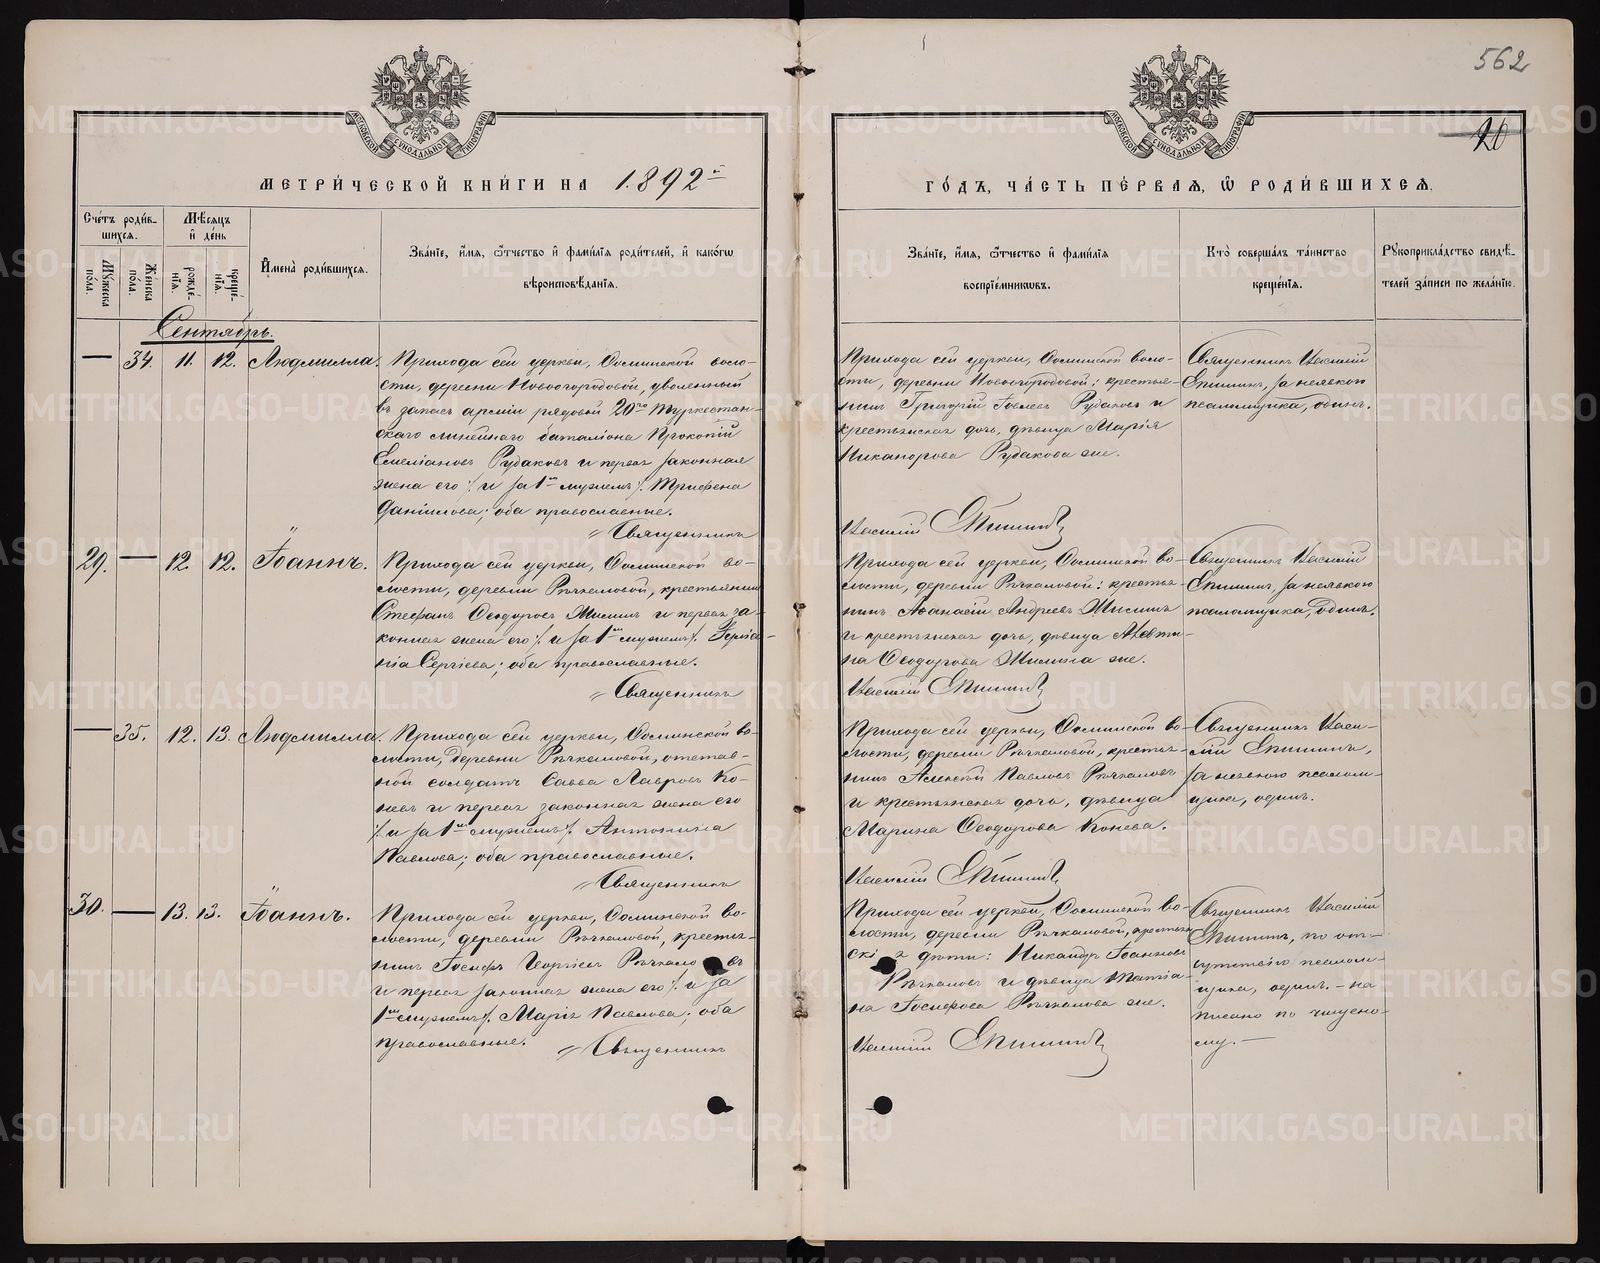 562
20
МОСКОВСКОЙ СѴНОДАЛЬНОЙ ТИПОГРАФІИ
МОСКОВСКОЙ СѴНОДАЛЬНОЙ ТИПОГРАФІИ
МЕТРИ́ЧЕСКОЙ КНИ́ГИ НА 1892й
ГО́ДЪ, ЧА́СТЬ ПЕ́РВАЯ, Ѡ҆ РОДИ́ВШИХСЯ.
Сче́тъ роди́в-
шихся.
Мѣ́сяцъ
и҆ де́нь
Мꙋ́жеска по́ла.
Же́нска по́ла.
рожде́-
нїя.
креще́-
нїя.
И҆мена̀ роди́вшихся.
Зва́нїе, и҆́мя, ѻ҆́тчество и҆ фами́лїя роди́телей, и҆ како́гѡ
вѣроисповѣ́данїя.
Зва́нїе, и҆́мя, ѻ҆́тчество и҆ фами́лїя
воспрїе́мниковъ.
Кто̀ соверша́лъ та́инство
креще́нїя.
Рꙋкоприкла́дство свидѣ́-
телей за́писи по жела́нїю.
Сентябрь.
— 34. 11. 12. Людмилла.
Прихода сей церкви, Осминской воло-
сти, деревни Новогородовой, уволенный
въ запасъ арміи рядовой 20го Туркестан-
скаго линейнаго баталіона Прокопій
Емеліановъ Рудаковъ и первая законная
жена его /. и за 1мъ мужемъ /. Трифена
Даніилова; оба православные.
Священникъ
Прихода сей церкви, Осминской воло-
сти, деревни Новогородовой: крестья-
нинъ Григорій Іовлевъ Рудаковъ и
крестьянская дочь, дѣвица Марія
Никанорова Рудакова же.
Василій Епишинъ
Священникъ Василій
Епишинъ, за неявкой
псаломщика, одинъ.
29. — 12. 12. Іоаннъ.
Прихода сей церкви, Осминской во-
лости, деревни Рѣчкаловой, крестьянинъ
Стефанъ Ѳеодоровъ Жилинъ и первая за-
конная жена его /. и за 1мъ мужемъ /.
нія Сергіева; оба православные.
Священникъ
Прихода сей церкви, Осминской во-
лости, деревни Рѣчкаловой: крестья-
нинъ Аѳанасій Андреевъ Жилинъ
и крестьянская дочь, дѣвица Алевти-
на Ѳеодорова Жилина же.
Василій Епишинъ
Священникъ Василій
Епишинъ, за неявкою
псаломщика, одинъ.
— 35. 12. 13. Людмилла.
Прихода сей церкви, Осминской во-
лости, деревни Рѣчкаловой, отстав-
ной солдатъ Савва Лавровъ Ко-
невъ и первая законная жена его
/. и за 1мъ мужемъ /. Антонина
Павлова; оба православные.
Священникъ
Прихода сей церкви, Осминской во-
лости, деревни Рѣчкаловой, крестья-
нинъ Алексѣй Павловъ Рѣчкаловъ
и крестьянская дочь, дѣвица
Марина Ѳеодорова Конева.
Василій Епишинъ
Священникъ Васи-
лій Епишинъ,
за неявкою псалом-
щика, одинъ.
30. — 13. 13. Іоаннъ.
Прихода сей церкви, Осминской во-
лости, деревни Рѣчкаловой, крестья-
нинъ Іосифъ Георгіевъ Рѣчкаловъ
и первая законная жена его /. и за
1мъ мужемъ /. Марія Павлова; оба
православные.
Священникъ
Прихода сей церкви, Осминской во-
лости, деревни Рѣчкаловой, крестьян-
скія дѣти: Никандръ Іоанновъ
Рѣчкаловъ и дѣвица Татіа-
на Іосифова Рѣчкалова же.
Василій Епишинъ
Священникъ Василій
Епишинъ, по от-
сутствію псалом-
щика, одинъ. — на-
писано по чищено-
му. —
METRIKI.GASO-URAL.RU